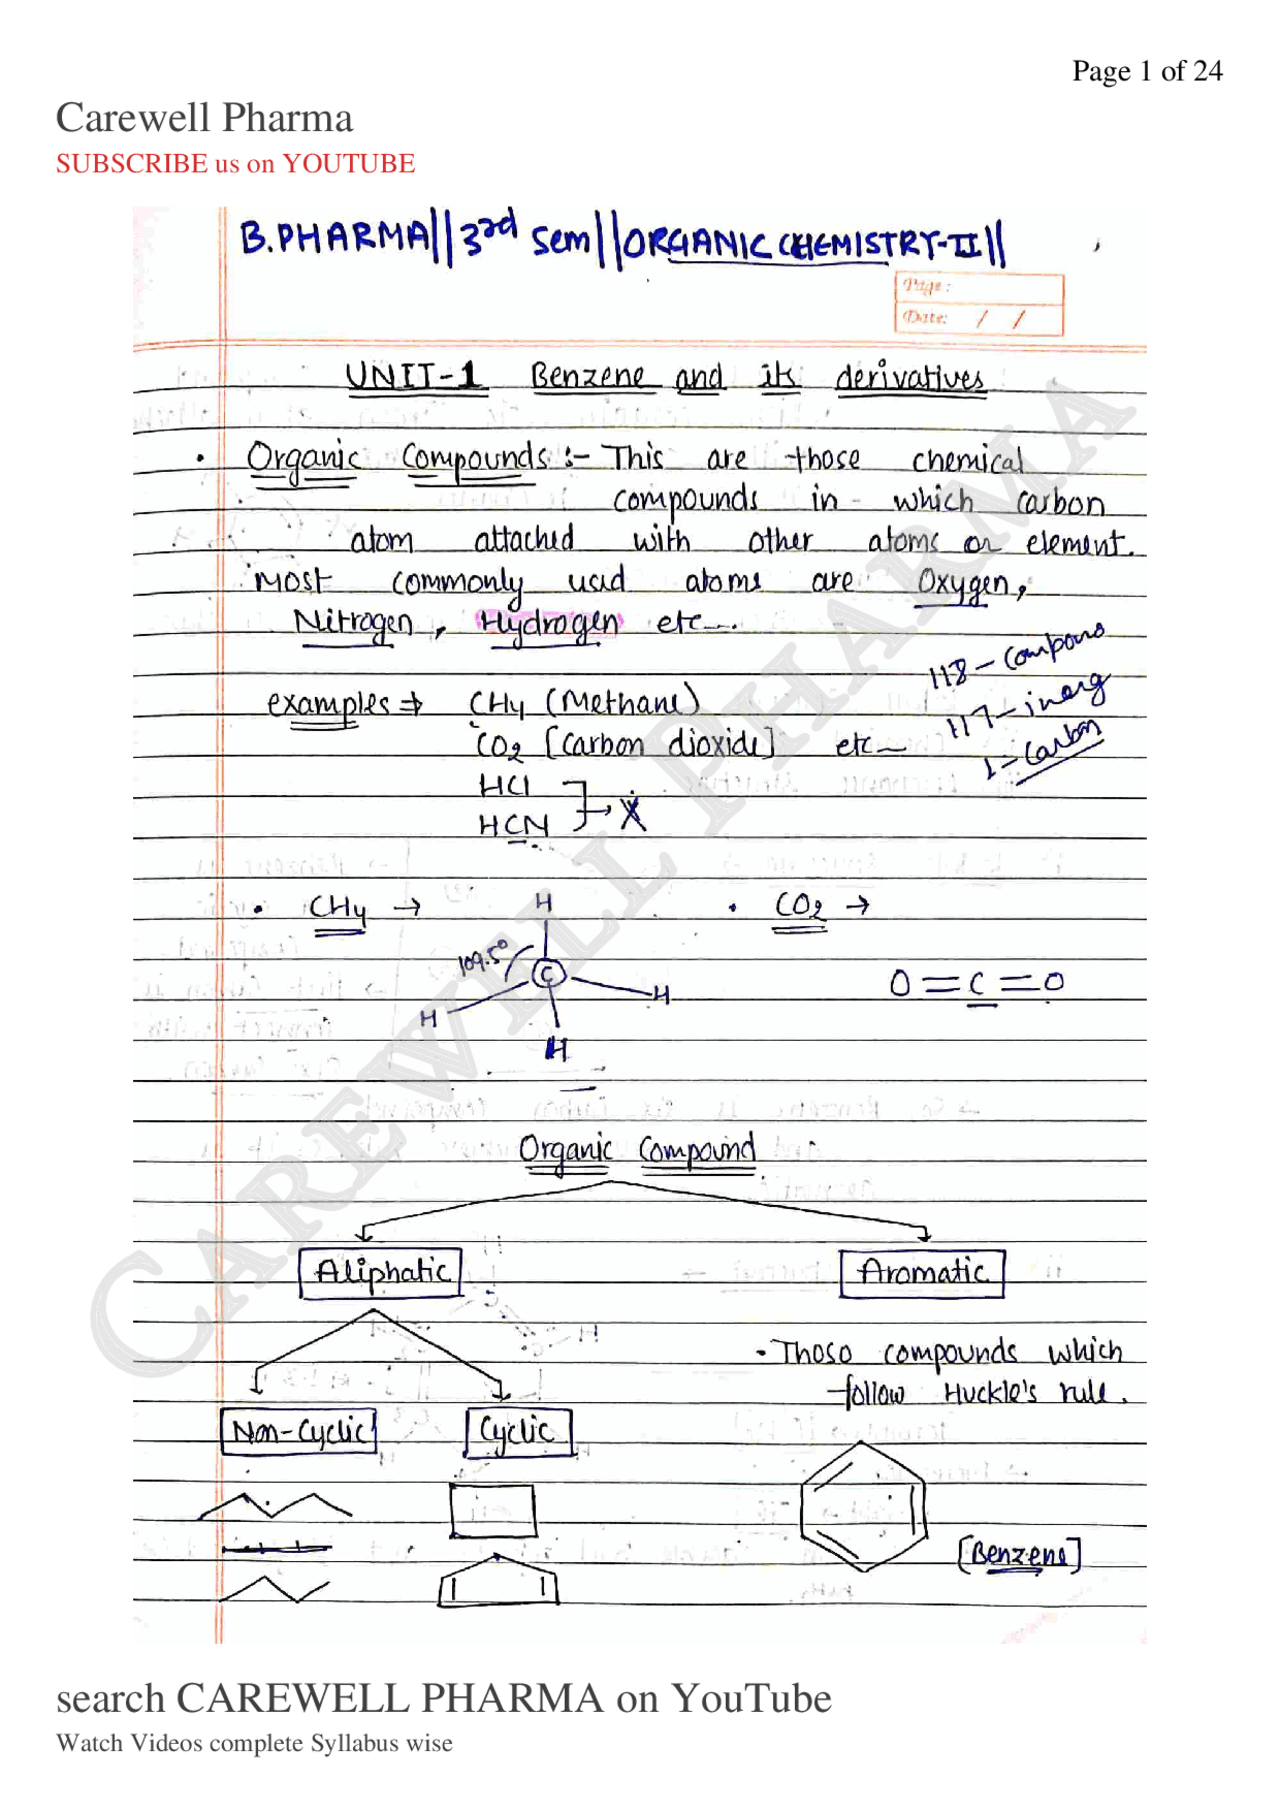 Page 1 of 24
Carewell Pharma
SUBSCRIBE us on YOUTUBE
B.PHARMA||3rd Sem||ORGANIC CHEMISTRY-II||
Page:
Date: / /
UNIT-1 Benzene and its derivatives
• Organic Compounds :- This are those chemical
compounds in which carbon
atom attached with other atoms or element.
Most commonly used atoms are Oxygen,
Nitrogen, Hydrogen etc.
118-Compons
117-inorg
1-Carbon
examples ⇒ CH4 (Methane)
CO2 [Carbon dioxide] etc
HCl
HCN → X
• CH4 →
• CO2 →
H
109.5°
C
H
H
H
O=C=O
Organic Compound
Aliphatic
Aromatic
• Those compounds which
follow Huckle's rule.
Non-Cyclic
Cyclic
[Benzene]
CAREWELL PHARMA
search CAREWELL PHARMA on YouTube
Watch Videos complete Syllabus wise